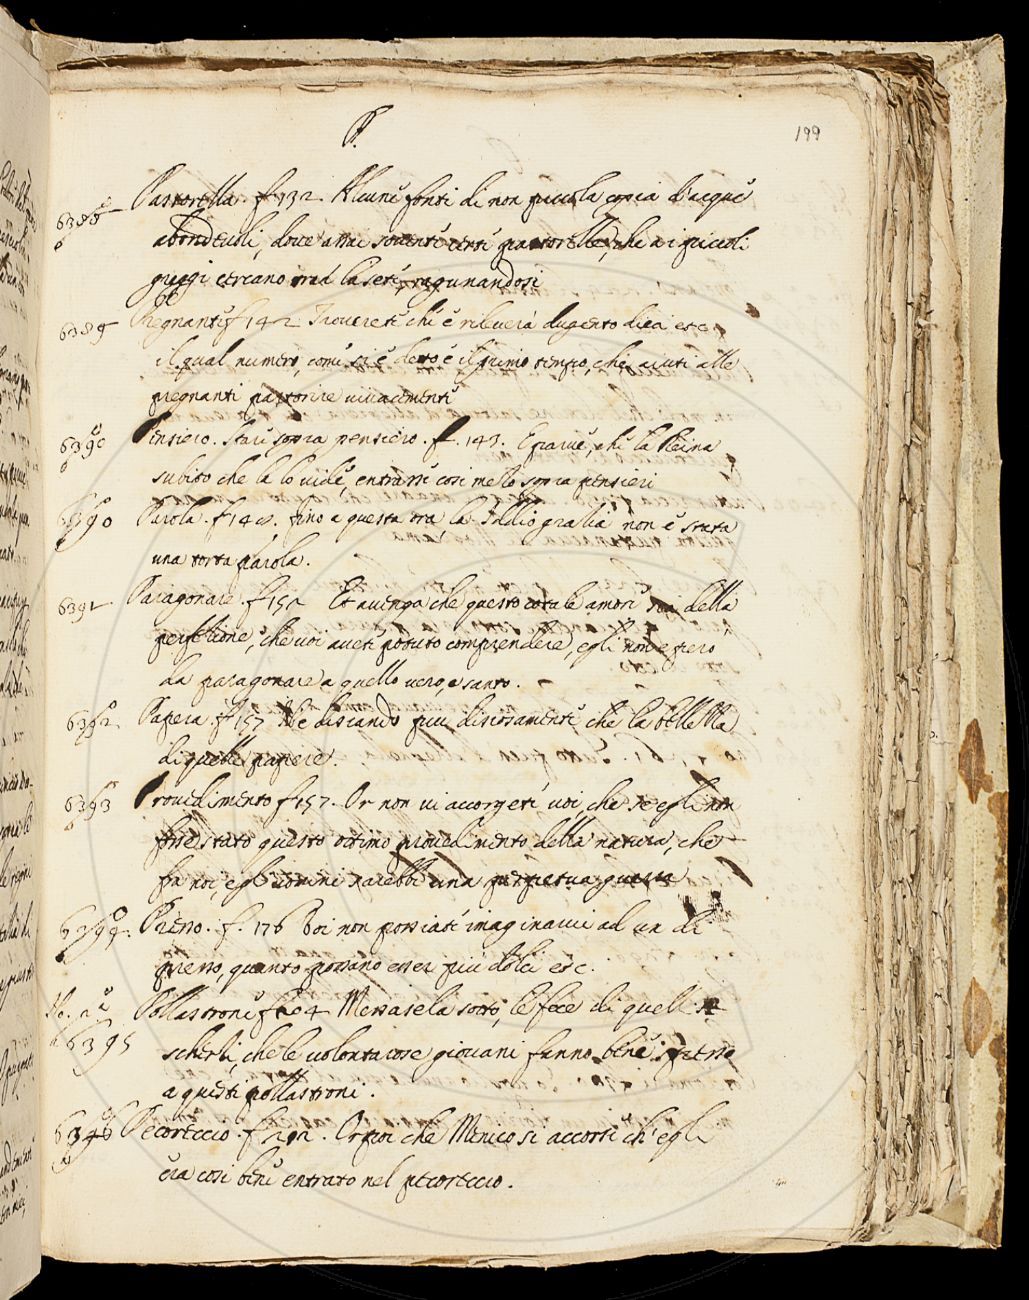 P.
199
6388 Pastorella. f. 132. Alcune fonti di non piccola copia d'acque
abondevoli, dove assai sovente certe pastorelle, che a i piccoli
greggi cercano trar la sete, ragunandosi
6389 Pregnante f 142. Troverete che e rileverà dugento dieci etc.
il qual numero, come si è detto è il primo tempo, che aiuti alle
pregnanti partorire vivacemente
Pensiero. Stare sopra pensiero. f. 143. E parve, che la Reina
subito che la lo vide, entrasse così mezzo sopra pensieri
6390 Parola. f 14 . fino a questa ora la Iddio grazia non è stata
una torta parola.
6391 Paragonare. f 152 Et avenga che questo cotale amore sia della
perfezione, che voi avete potuto comprendere, egli non è però
da paragonare a quello vero, e santo.
6392 Papera. f 157 Ne disiando più disiosamente che la bellezza
di quelle papere.
6393 Provedimento f 157. Or non vi accorgete voi, che se egli non
fosse stato questo ottimo provedimento della natura, che
fra noi, e gl'uomini sarebbe una perpetua guerra
6394. Presso. f. 176 Voi non possiate imaginarvi ad un di
presso, quanto possano esser più dolci etc.
6395 Pollastrone f 204 Messasela sotto, le fece di quelli
scherzi, che le volontarose giovani fanno bene spesso
a questi pollastroni.
6396 Pecoreccio. f 212. Or poi che Menico si accorse ch'egli
era così bene entrato nel pecoreccio.